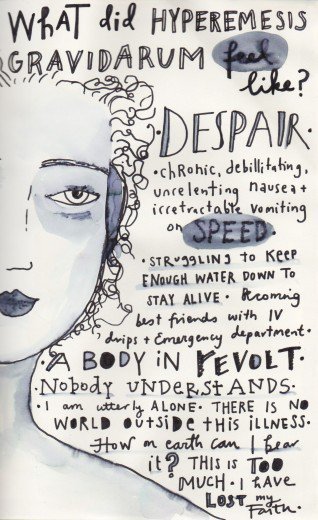 WHAT did HYPEREMESIS
GRAVIDARUM feel
like?
DESPAIR.
• chronic, debillitating,
unrelenting nausea +
irretractable vomiting
on SPEED.
• STRUGGLING to KEEP
ENOUGH WATER DOWN TO
STAY ALIVE • Becoming
best friends with IV
drips + Emergency department •
• A BODY IN REVOLT •
• Nobody UNDERSTANDS •
• I am utterly ALONE • THERE IS NO
WORLD OUTSIDE tHIS ILLNESS •
How on earth can I bear
it? THIS IS TOO
MUCH • I HAVE
LOST my
Faith.